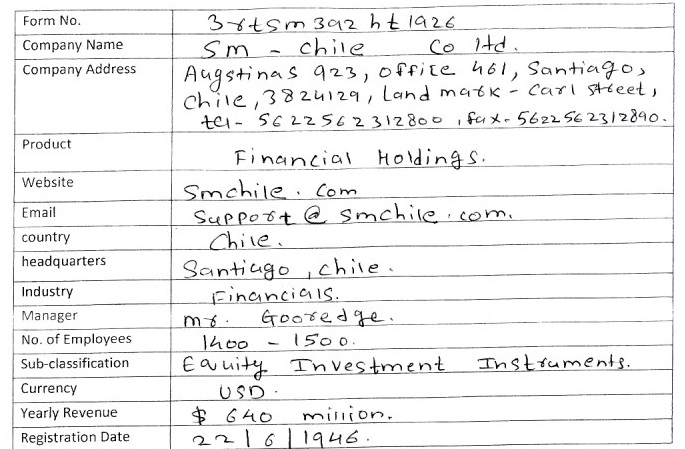 Form No. 3rtsm3921ht1926
Company Name Sm - Chile Co ltd.
Company Address Augstinas 923, office 461, Santiago,
Chile, 3824129, Land mark - Carl street,
tel- 5622562312800, fax- 5622562312890.
Product Financial Holdings.
Website Smchile.com
Email Support@smchile.com.
country Chile.
headquarters Santiago, chile.
Industry Financials.
Manager mr. Gooredge.
No. of Employees 1400 - 1500.
Sub-classification Equity Investment Instruments.
Currency USD.
Yearly Revenue $ 640 million.
Registration Date 22/6/1946.